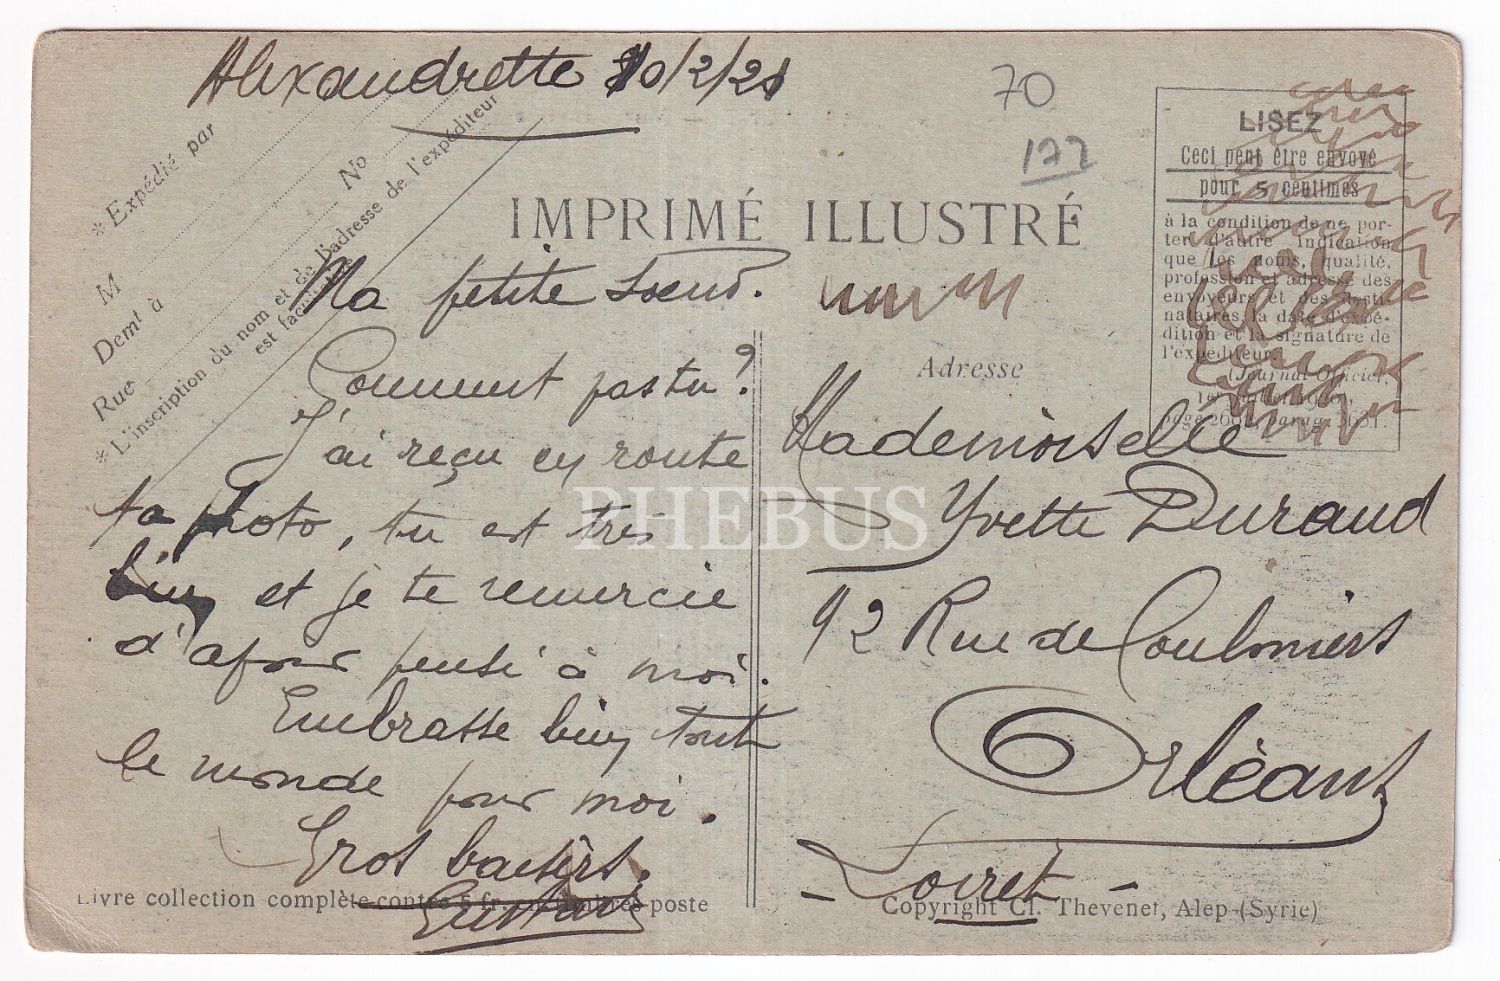 Alexandrette 10/2/21
70
122
* Expédié par
M
No
Demt à
Rue
* L'inscription du nom et de l'adresse de l'expéditeur
est facultative
LISEZ
Ceci peut être envoyé
pour 5 centimes
à la condition de ne por-
ter d'autre indication
que les noms, qualité,
profession et adresse des
envoyeurs et des desti-
nataires, la date d'expé-
dition et la signature de
l'expéditeur.
(Journal Officiel,
IMPRIMÉ ILLUSTRÉ
Ma petite Soeur.
Comment vas tu?
J'ai reçu en route
ta photo, tu est très
bien et je te remercie
d'avoir pensé à moi.
Embrasse bien tout
le monde pour moi.
Gros baisers.
Gustave
Adresse
Mademoiselle
Yvette Durand
92 Rue de Coulmiers
Orléans
- Loiret -
PHEBUS
Livre collection complète contre 5 fr. en timbres-poste
Copyright Cl. Thevenet, Alep (Syrie)